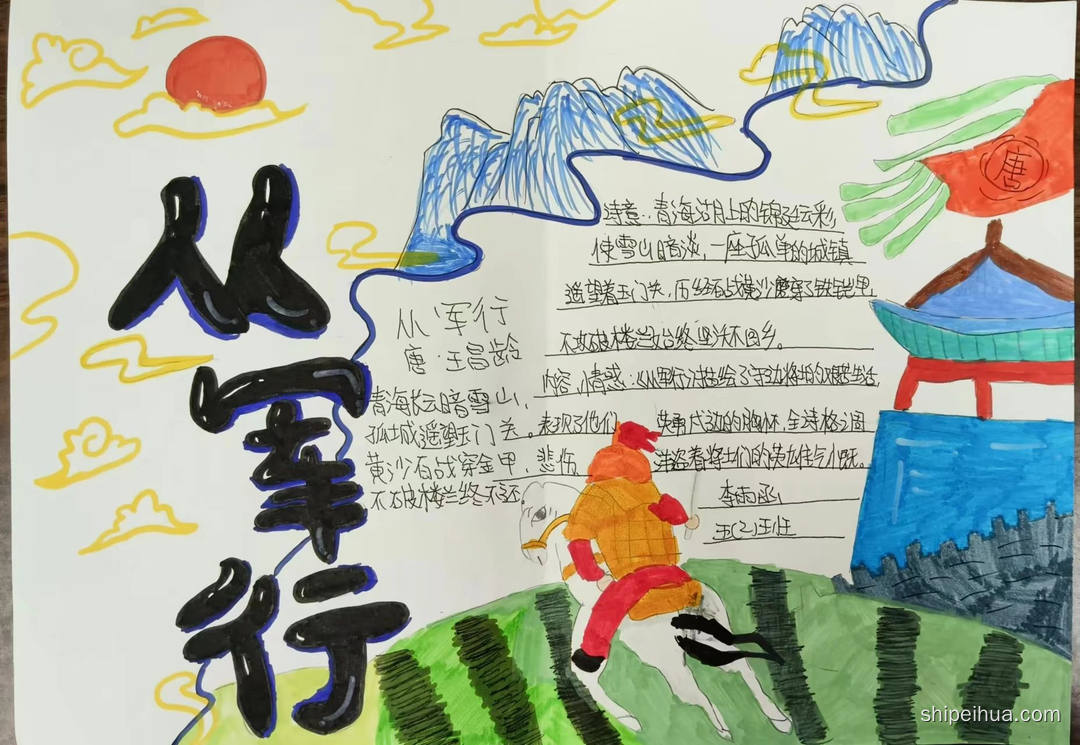 从
军
行
唐
从军行
唐·王昌龄
青海长云暗雪山,
孤城遥望玉门关。
黄沙百战穿金甲,
不破楼兰终不还
诗意:青海湖上的锦延云彩,
使雪山暗淡,一座孤单的城镇
遥望着玉门关,历经百战黄沙磨穿了铁铠甲,
不攻破楼兰始终坚决不回乡。
内容、情感:《从军行》描绘了守边将士的艰苦生活,
表现了他们 戍边的胸怀,全诗格调
悲伤 洋溢着将士们的英雄
李雨函
shipeihua.com